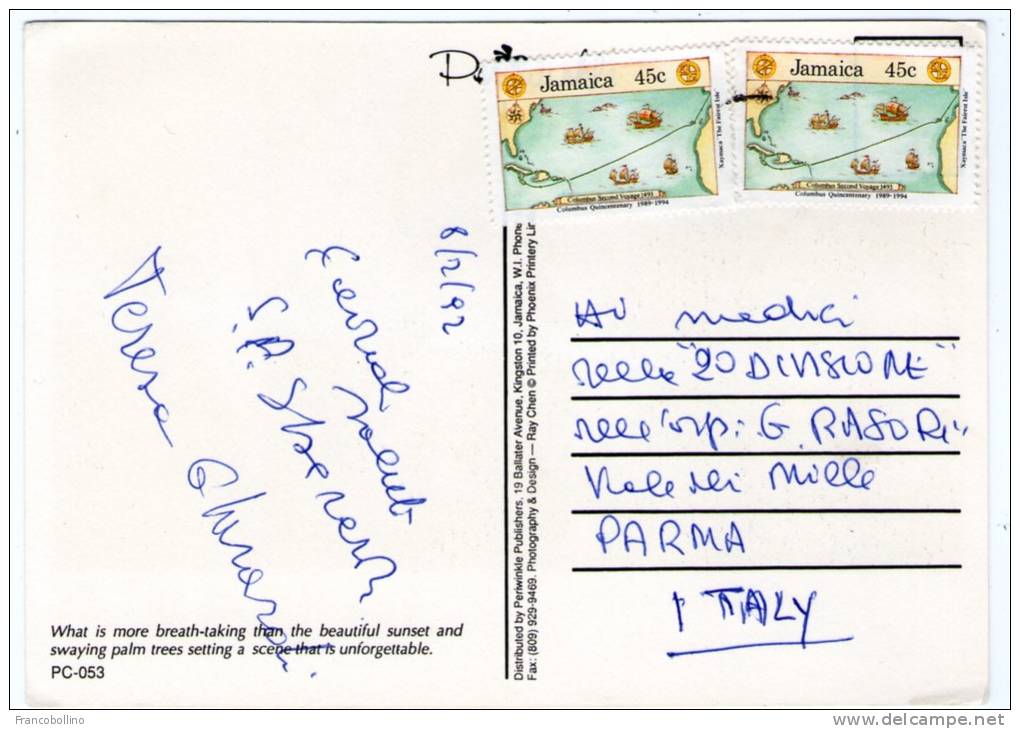 Jamaica 45c
Xaymaca 'The Fairest Isle'
Columbus Second Voyage 1493
Columbus Quincentenary 1989-1994
Jamaica 45c
Xaymaca 'The Fairest Isle'
Columbus Second Voyage 1493
Columbus Quincentenary 1989-1994
8/2/92
Cordiali
saluti
Teresa
Distributed by Periwinkle Publishers. 19 Ballater Avenue, Kingston 10, Jamaica, W.I. Phone
Fax: (809) 929-9469. Photography & Design — Ray Chen © Printed by Phoenix Printery
Ai medici
della "20 DIVISIONE"
dell'osp: G. RASORI
Viale dei Mille
PARMA
ITALY
What is more breath-taking than the beautiful sunset and
swaying palm trees setting a scene that is unforgettable.
PC-053
Francobollino
www.delcampe.net